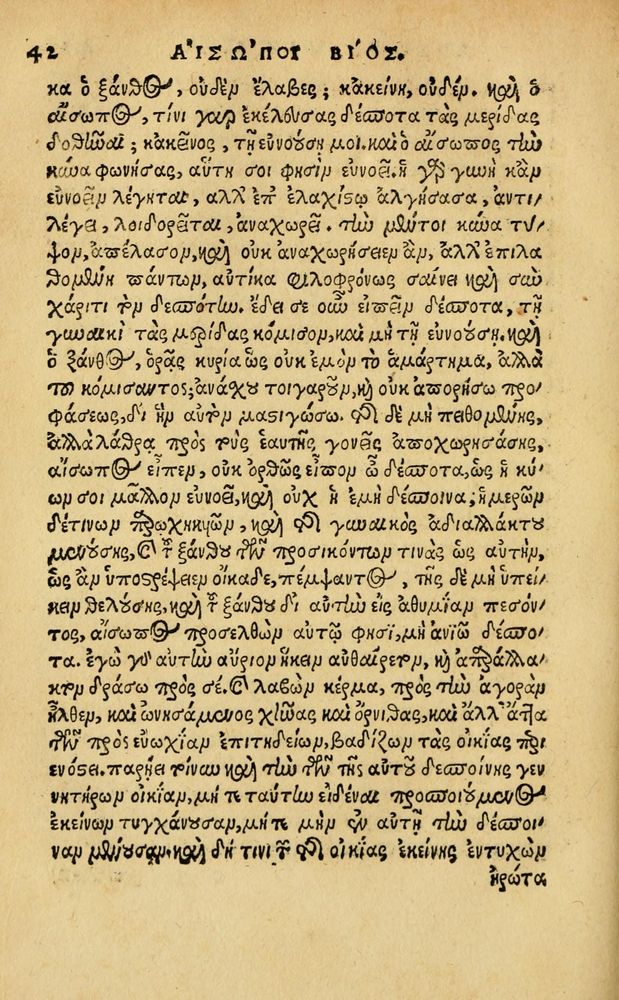 42 ΑἸΣΩΠΟΥ ΒΊΟΣ.
κα ὁ ξάνθος, οὐδὲν ἔλαβες; κἀκείνη, οὐδέν. καὶ ὁ
αἴσωπος, τίνι γὰρ ἐκέλευσας δέσποτα τὰς μερίδας
δοθῆναι; κἀκεῖνος, τῇ εὐνοούσῃ μοι. καὶ ὁ αἴσωπος τὴν
κύνα φωνήσας, αὕτη σοι φησὶν εὐνοεῖ. ἡ γὰρ γυνὴ κἂν
εὐνοεῖν λέγηται, ἀλλ' ἐπ' ἐλαχίστῳ ἀλγήσασα, ἀντι/
λέγει, λοιδορεῖται, ἀναχωρεῖ. τὴν μέντοι κύνα τύ/
ψον, ἀπέλασον, καὶ οὐκ ἀναχωρήσειεν ἂν, ἀλλ' ἐπιλα
θομένη πάντων, αὐτίκα φιλοφρόνως σαίνει καὶ σὺν
χάριτι τὸν δεσπότην. ἔδει σε οὖν εἰπεῖν δέσποτα, τῇ
γυναικὶ τὰς μερίδας κόμισον, καὶ μὴ τῇ εὐνοούσῃ. καὶ
ὁ ξάνθος, ὁρᾷς κυρία ὡς οὐκ ἐμὸν τὸ ἁμάρτημα, ἀλλὰ
τοῦ κομίσαντος; ἀνάσχου τοιγαροῦν, καὶ οὐκ ἀπορήσω προ/
φάσεως, δι' ἣν αὐτὸν μαστιγώσω. τῆς δὲ μὴ πειθομένης,
ἀλλὰ λάθρα πρὸς τοὺς ἑαυτῆς γονεῖς ἀποχωρησάσης,
αἴσωπος εἶπεν, οὐκ ὀρθῶς εἶπον ὦ δέσποτα, ὡς ἡ κύ/
ων σοι μᾶλλον εὐνοεῖ, καὶ οὐχ ἡ ἐμὴ δέσποινα; ἡμερῶν
δέ τινων παρῳχηκυιῶν, καὶ τῆς γυναικὸς ἀδιαλλάκτου
μενούσης, καὶ τοῦ ξάνθου τῶν προσηκόντων τινὰς ὡς αὐτὴν,
ὡς ἂν ὑποστρέψειεν οἴκαδε, πέμψαντος, τῆς δὲ μὴ ὑπεί/
κειν θελούσης, καὶ τοῦ ξάνθου δι' αὐτὴν εἰς ἀθυμίαν πεσόν/
τος, αἴσωπος προσελθὼν αὐτῷ φησὶ, μὴ ἀνιῶ δέσπο/
τα. ἐγὼ γὰρ αὐτὴν αὔριον ἥκειν αὐθαίρετον, καὶ ἀπαράλλα/
κτον δράσω πρὸς σέ. καὶ λαβὼν κέρμα, πρὸς τὴν ἀγορὰν
ἦλθεν, καὶ ὠνησάμενος χῆνας καὶ ὄρνιθας, καὶ ἄλλ' ἄττα
τῶν πρὸς εὐωχίαν ἐπιτηδείων, βαδίζων τὰς οἰκίας περι
ενόστει. παρῄει τοίνυν καὶ τὴν τῶν τῆς αὐτοῦ δεσποίνης γεν
νητόρων οἰκίαν, μήτε ταύτην εἰδέναι προσποιούμενος
ἐκείνων τυγχάνουσαν, μήτε μὴν ἐν αὐτῇ τὴν δέσποι/
ναν μένουσαν. καὶ δή τινι τῶν τῆς οἰκίας ἐκείνης ἐντυχὼν
ἠρώτα